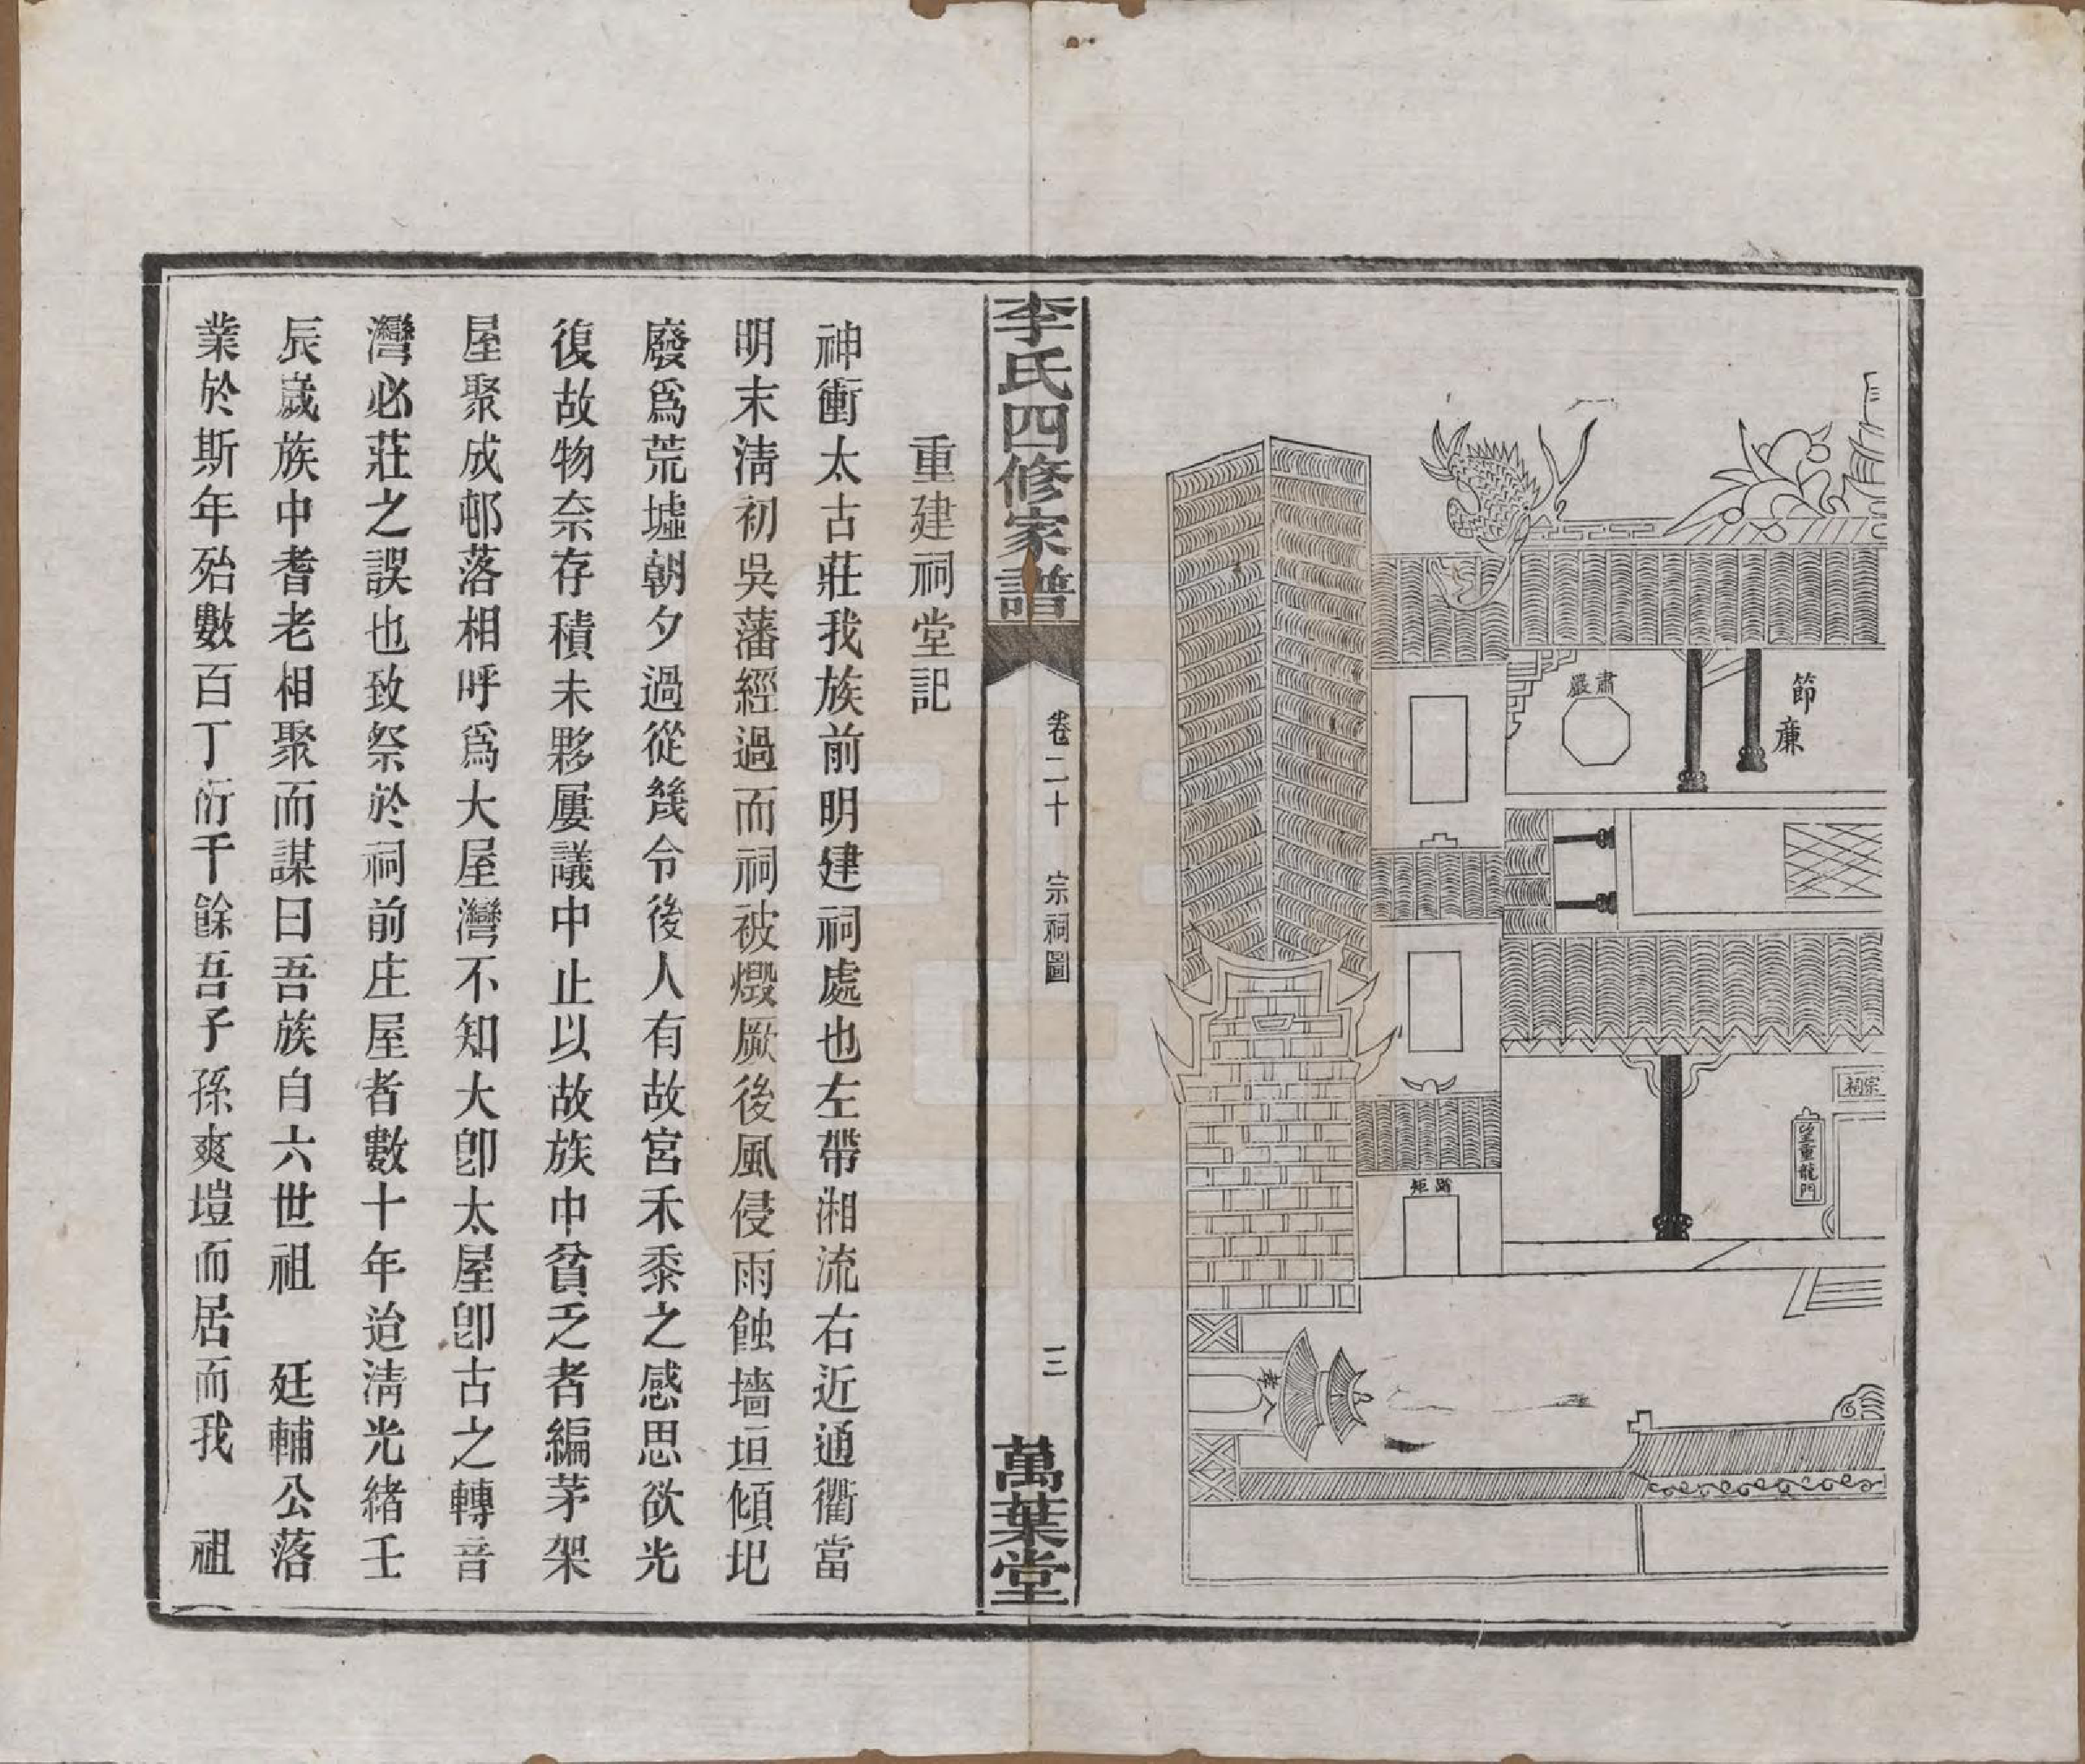 節
廉
肅嚴
宗祠
望重龍門
矩
李氏四修家譜
卷二十
宗祠圖
三
萬葉堂
重建祠堂記
神衝太古莊我族前明建祠處也左帶湘流右近通衢當
明末清初吳藩經過而祠被燬厥後風侵雨蝕墻垣傾圯
廢爲荒墟朝夕過從幾令後人有故宮禾黍之感思欲光
復故物奈存積未夥屢議中止以故族中貧乏者編茅架
屋聚成邨落相呼爲大屋灣不知大卽太屋卽古之轉音
灣必莊之誤也致祭於祠前庄屋者數十年迨清光緒壬
辰歲族中耆老相聚而謀曰吾族自六世祖　廷輔公落
業於斯年殆數百丁衍千餘吾子孫爽塏而居而我　祖